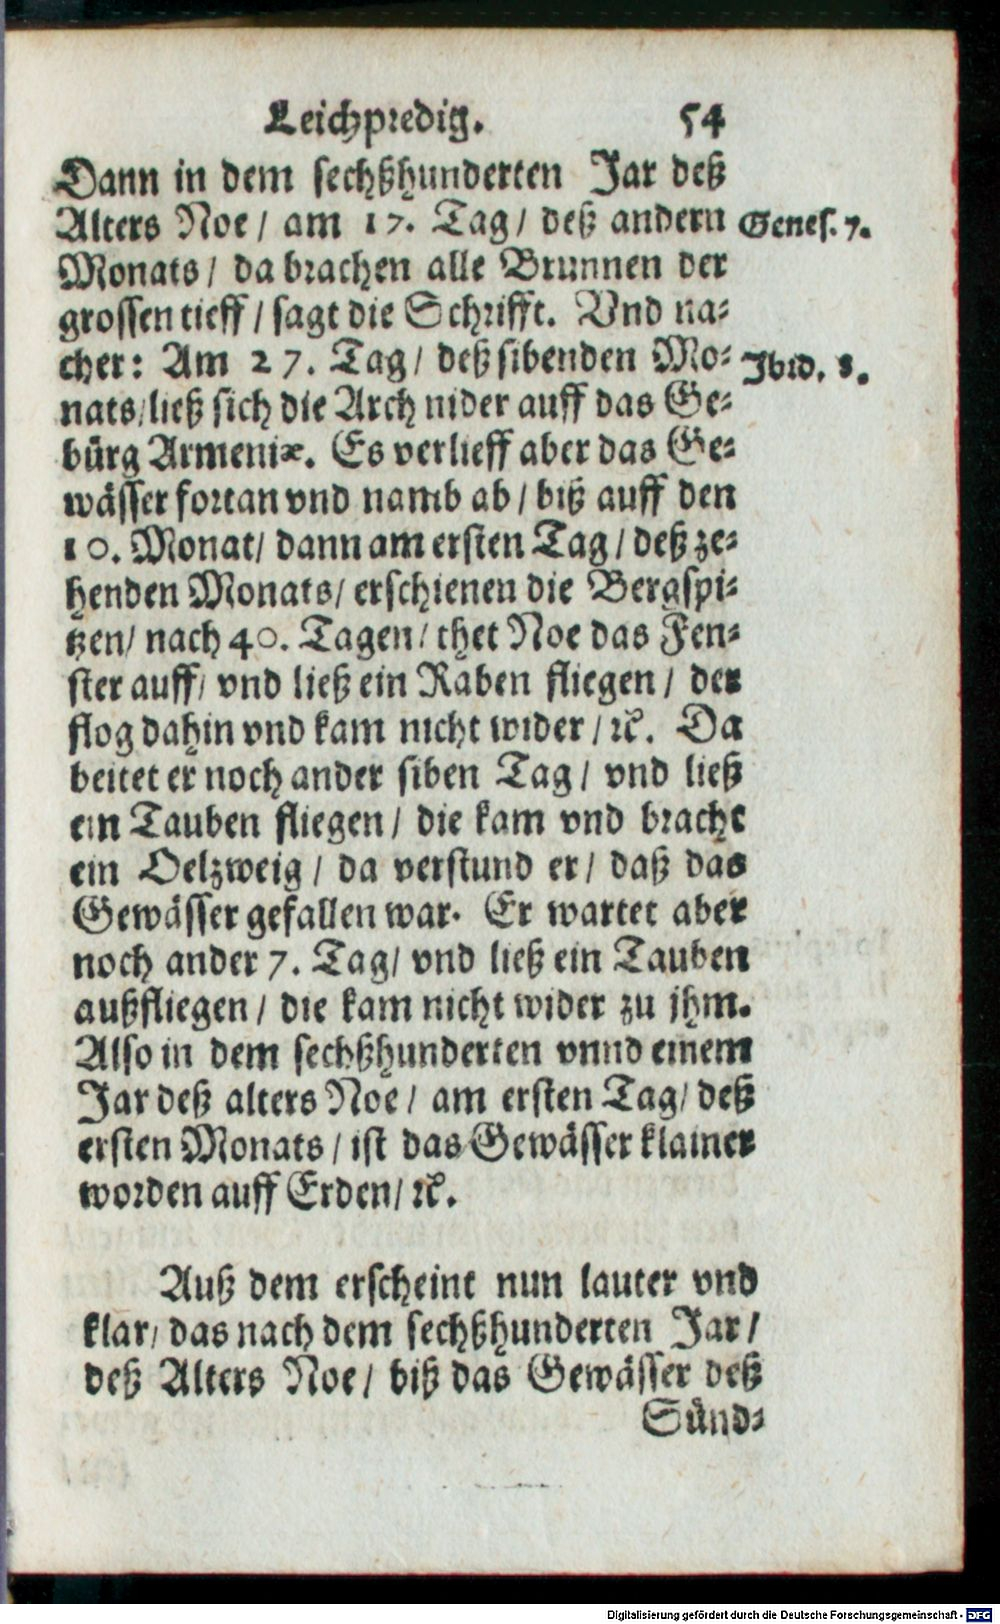 Leichpredig. 54
Dann in dem sechßhunderten Jar deß
Alters Noe / am 17. Tag / deß andern Genes. 7.
Monats / da brachen alle Brunnen der
grossen tieff / sagt die Schrifft. Vnd na⸗
cher: Am 27. Tag / deß sibenden Mo⸗ Ibid. 8.
nats / ließ sich die Arch nider auff das Ge⸗
bürg Armeniæ. Es verlieff aber das Ge⸗
wässer fortan vnd namb ab / biß auff den
10. Monat / dann am ersten Tag / deß ze⸗
henden Monats / erschienen die Bergspi⸗
tzen / nach 40. Tagen / thet Noe das Fen⸗
ster auff / vnd ließ ein Raben fliegen / der
flog dahin vnd kam nicht wider / ꝛc. Da
beitet er noch ander siben Tag / vnd ließ
ein Tauben fliegen / die kam vnd bracht
ein Oelzweig / da verstund er / daß das
Gewässer gefallen war. Er wartet aber
noch ander 7. Tag / vnd ließ ein Tauben
außfliegen / die kam nicht wider zu jhm.
Also in dem sechßhunderten vnnd einem
Jar deß alters Noe / am ersten Tag / deß
ersten Monats / ist das Gewässer klainer
worden auff Erden / ꝛc.
Auß dem erscheint nun lauter vnd
klar / das nach dem sechßhunderten Jar /
deß Alters Noe / biß das Gewässer deß
Sünd⸗
Digitalisierung gefördert durch die Deutsche Forschungsgemeinschaft - DFG